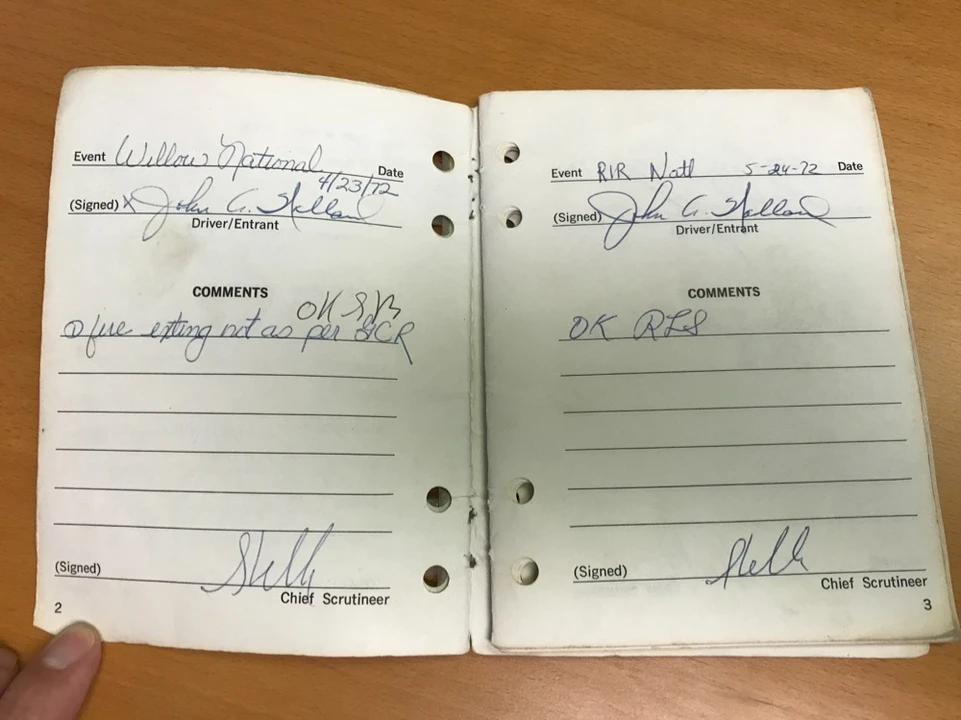 Event Willow National Date
4/23/72
(Signed) X John G. Holland
Driver/Entrant
COMMENTS
OK
① fire exting not as per GCR
(Signed)
Chief Scrutineer
2
Event RIR Natl 5-24-72 Date
(Signed) John G. Holland
Driver/Entrant
COMMENTS
OK RLS
(Signed)
Chief Scrutineer
3